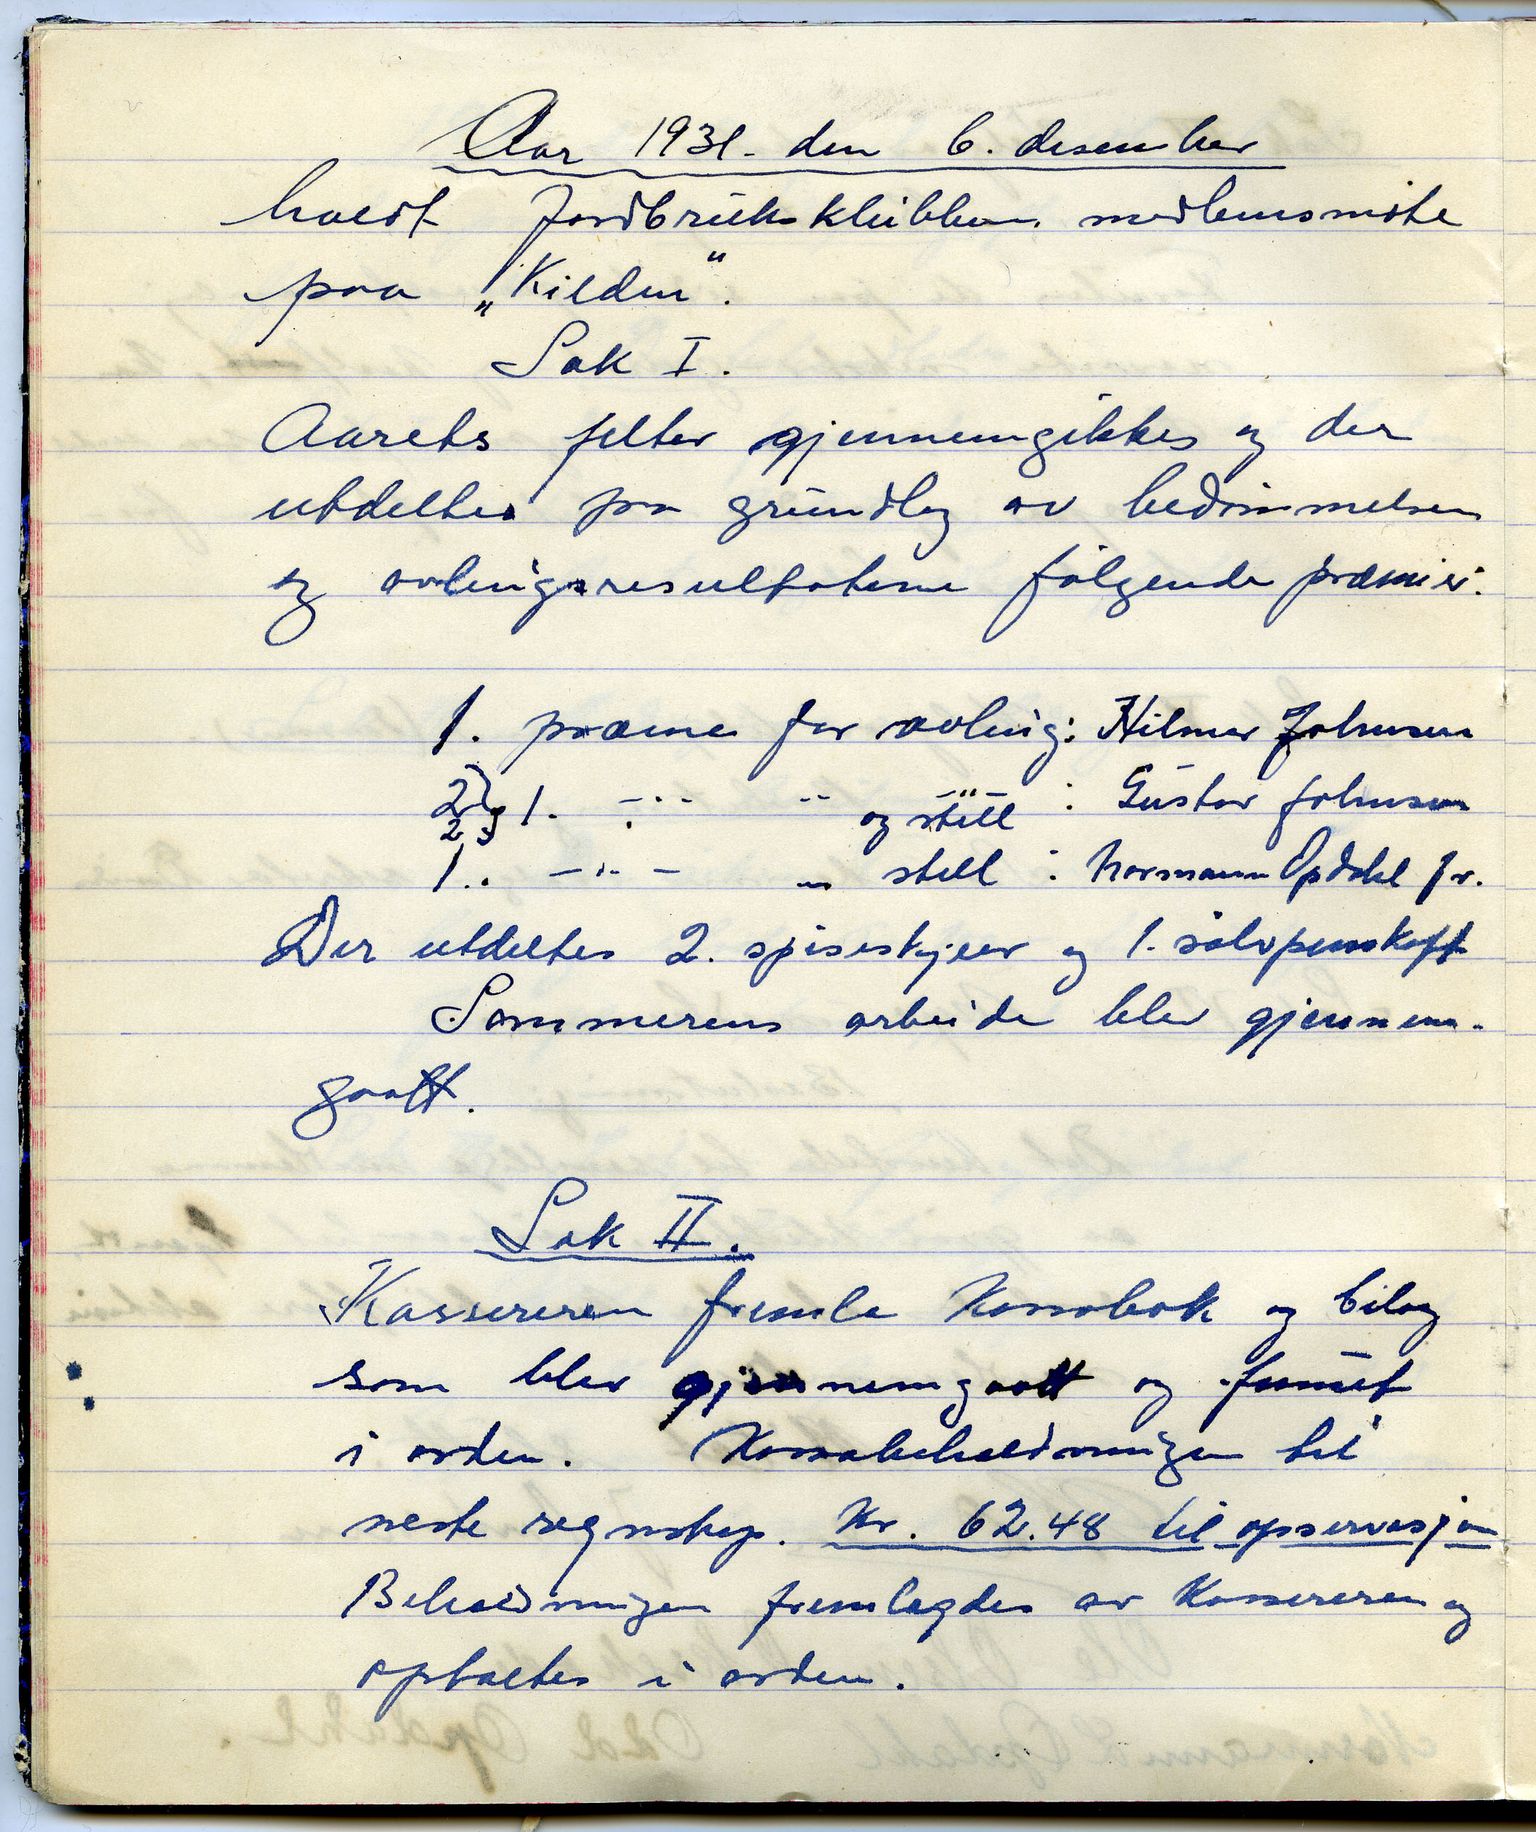 Aar 1931. den 6. desember
holdt Jordbruksklubben medlemsmöte
paa „Kilden".
Sak I.
Aarets felter gjennemgikkes og der
utdeltes paa grundlag av bedömmelsen
og avlingsresultatene følgende præmier.
1. præmie for avling: Hilmar Johnsen
2 og 1. -"- " og stell : Gustav Johnsen
1.. -"- " stell : Normann Opdahl jr.
Der utdeltes 2. spiseskjeer og 1. sölvpenskaft
Sommerens arbeide blev gjennem-
gaatt.
Sak II.
Kassereren fremla Kassabok og bilag
som blev gjennemgaatt og funnet
i orden. Kassabeholdningen til
neste regnskap. Kr. 62.48 til opservasjon
Beholdningen fremlagdes av Kassereren og
optaltes i orden.